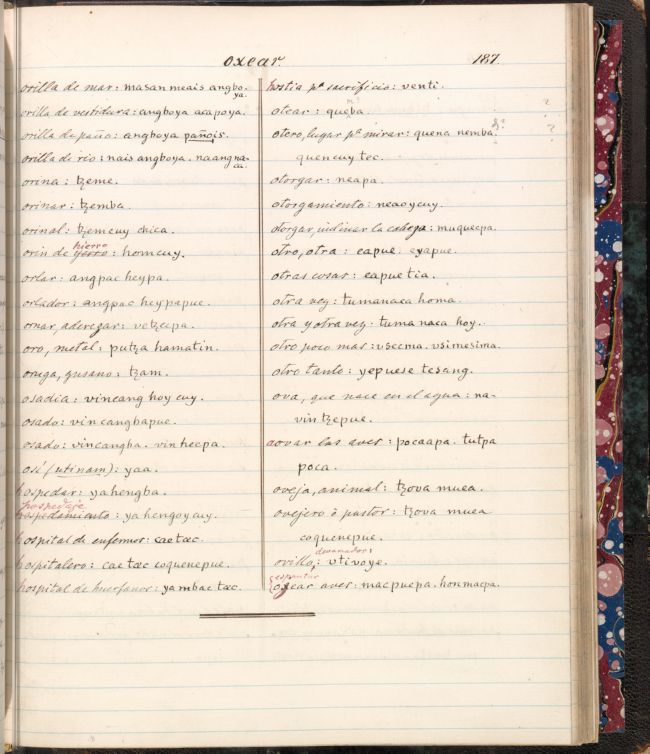 oxear
187.
orilla de mar: masan meais angbo-
ya.
orilla de vestidura: angboya acapoya.
orilla de paño: angboya pañois.
orilla de rio: nais angboya. naangna-
ca.
orina: tzeme.
orinar: tzemba.
orinal: tzemecuy chica.
hierro
orin de yerro: homcuy.
orlar: angpac heypa.
orlador: angpac heypapue.
ornar, aderezar: vetzcepa.
oro, metal: putza hamatin.
oruga, gusano: tzam.
osadia: vincang hoy cuy.
osado: vin cangbapue.
osado: vincangba. vin hecpa.
osi (utinam): yaa.
hospedar: yahengba.
hospedaje
hospedamiento: ya hengoycuy.
hospital de enfermos: caetæc.
hospitalero: cae tæc coquenepue.
hospital de huerfanos: yambae tæc.
hostia pª sacrificio: venti.
otear: queba.
?
otero, lugar pª mirar: quena nemba.
?
quencuy tec.
otorgar: neapa.
otorgamiento: neaoycuy.
otorgar, indinar la cabeza: muquecpa.
otro, otra: eapue. eyapue.
otras cosas: eapue tia.
otra vez: tumanaca homa.
otra y otra vez: tuma naca hoy.
otro poco mas: vsecma. vsimesima.
otro tanto: yepuese tesang.
ova, que nace en el agua: na-
vin tzepue.
aovar las aves: pocaapa. tutpa
poca.
oveja, animal: tzova muea.
ovejero ó pastor: tzova muea
coquenepue.
devanador:
ovillo: vtivoye.
espantar
oxear aves: macpuepa. honmacpa.